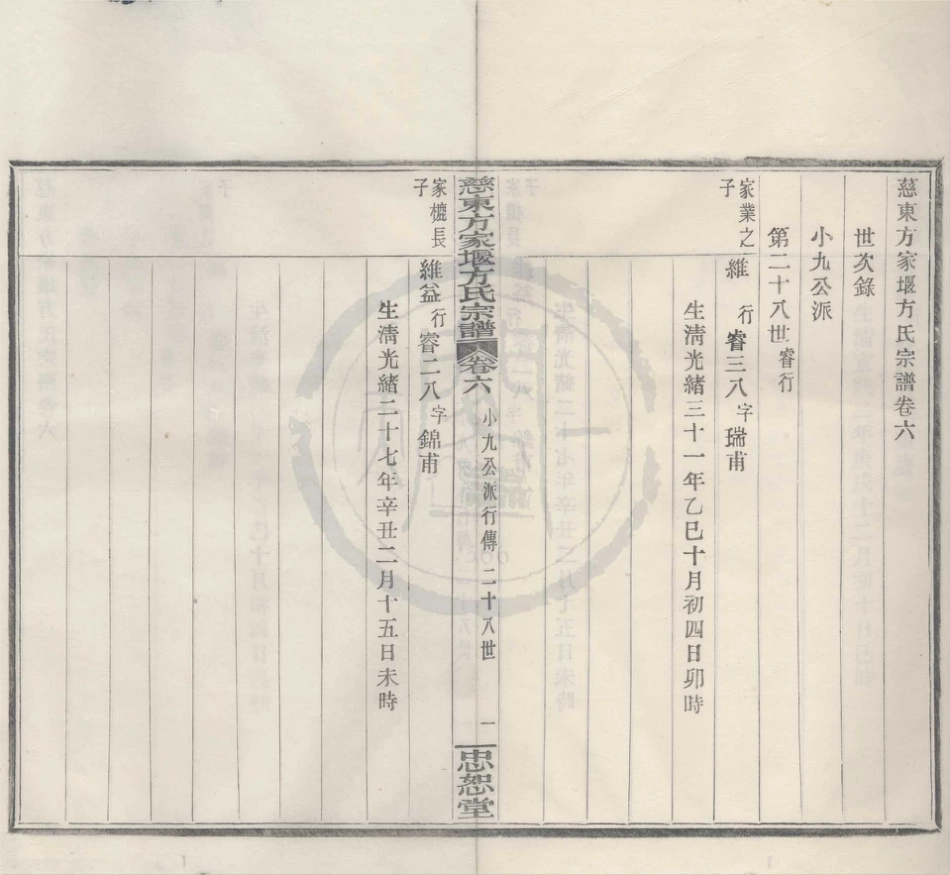 慈東方家堰方氏宗譜卷六
世次錄
小九公派
第二十八世睿行
家業之子
維 行睿三八字瑞甫
生淸光緒三十一年乙巳十月初四日卯時
慈東方家堰方氏宗譜 卷六 小九公派行傳 二十八世 一 忠恕堂
家樾長子
維益行睿二八字錦甫
生淸光緒二十七年辛丑二月十五日未時